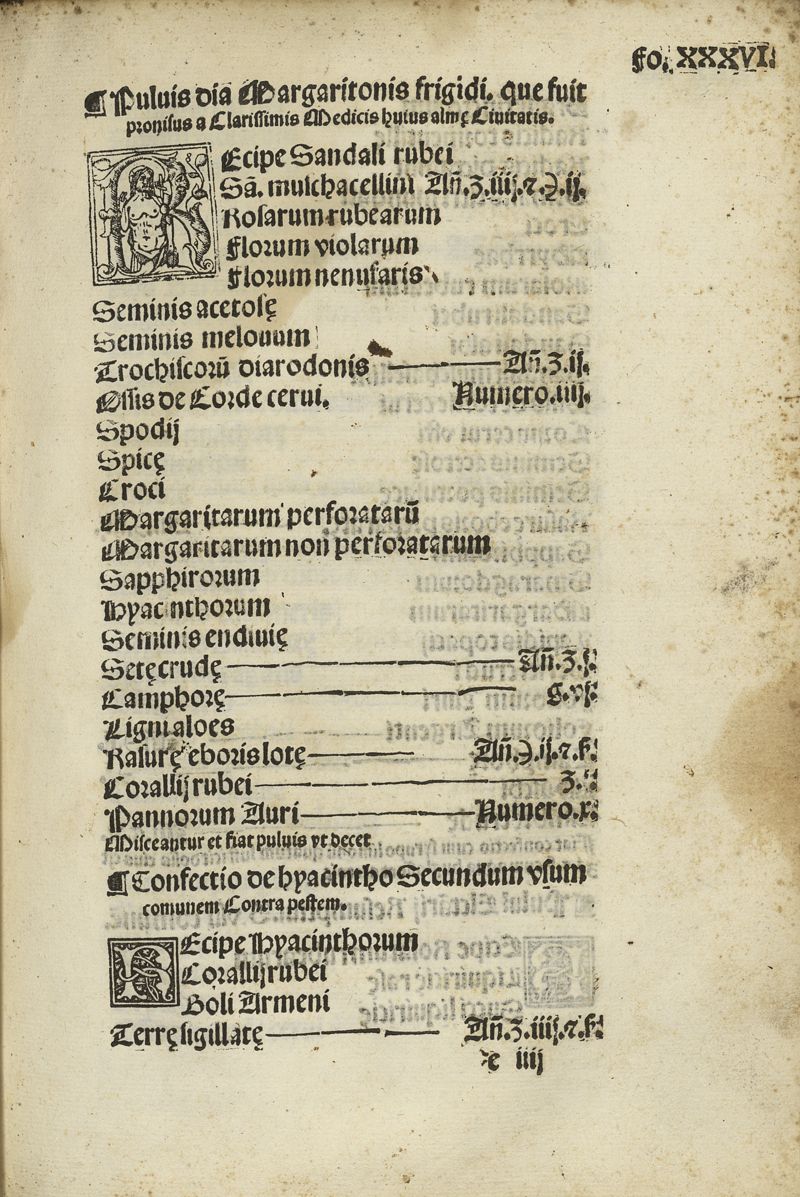 fo. XXXVI.
¶ Puluis dia Margaritonis frigidi. que fuit
prouisus a Clarissimis Medicis huius almę Ciuitatis.
REcipe Sandali rubei
Sā. muschacellini Añ.ʒ.iiij.⁊.℈.ij.
Rosarum rubearum
Florum violarum
Florum nenufaris
Seminis acetosę
Seminis melonum
Trochiscorū diarodonis Añ.ʒ.ij.
Ossis de Corde cerui. Numero.iiij.
Spodij
Spicę
Croci
Margaritarum perforatarū
Margaritarum non perforatarum
Sapphirorum
Hyacinthorum
Seminis endiuię
Setę crudę Añ.ʒ.
Camphorę
Ligni aloes
Rasurę eboris lotę Añ.℈.ij.⁊.ſ.
Corallij rubei ʒ.
Pannorum Auri Numero.x.
Misceantur et fiat puluis vt decet
¶ Confectio de hyacintho Secundum vsum
comunem Contra pestem.
REcipe Hyacinthorum
Corallij rubei
Boli Armeni
Terrę sigillatę Añ.ʒ.iiij.⁊.ſ.
e iiij